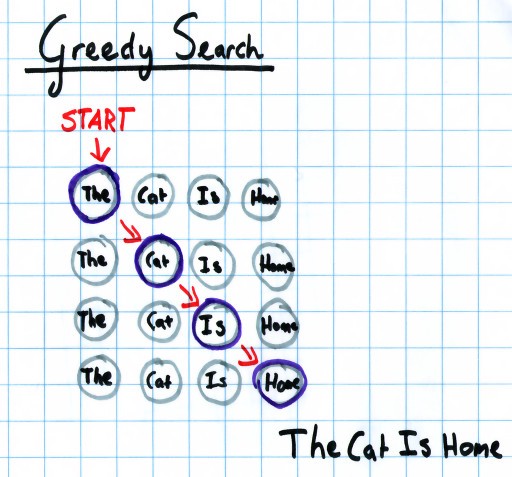 Greedy Search
START
The Cat Is Home
The Cat Is Home
The Cat Is Home
The Cat Is Home
The Cat Is Home